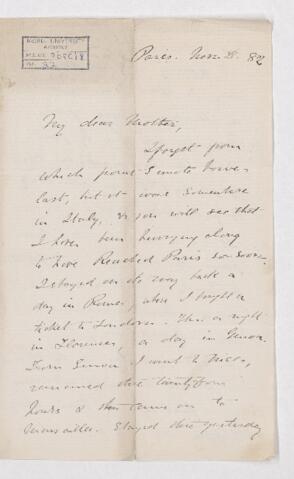 Paris. Nov. 8. 82
My dear Mother,
I forgot from
which point I wrote
last, but it was somewhere
in Italy, & you will see that
I have been hurrying along
to have reached Paris so soon.
I stayed on my way back a
day in Rome, where I bought a
ticket to London. Then a night
in Florence, a day in Genoa.
From Genoa I went to Nice,
remained there twenty four
hours & then came on to
Marseilles. Stayed there yesterday